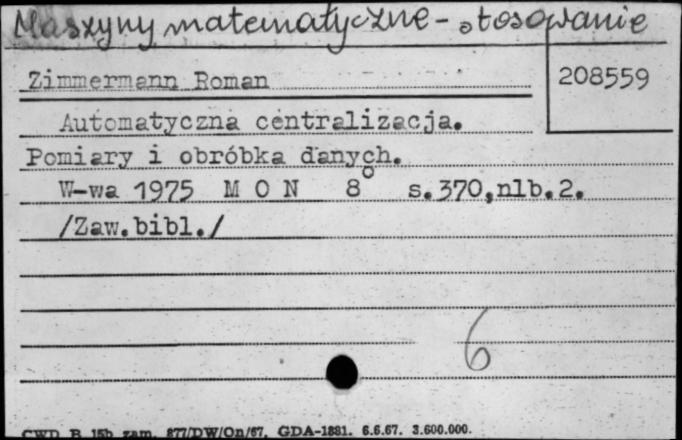 Maszyny matematyczne - stosowanie
Zimmermann Roman
208559
Automatyczna centralizacja.
Pomiary i obróbka danych.
W-wa 1975 M O N 8° s.370,nlb.2.
/Zaw.bibl./
6
CWD B 15b zam. 877/DW/On/67. GDA-1881. 6.6.67. 3.600.000.